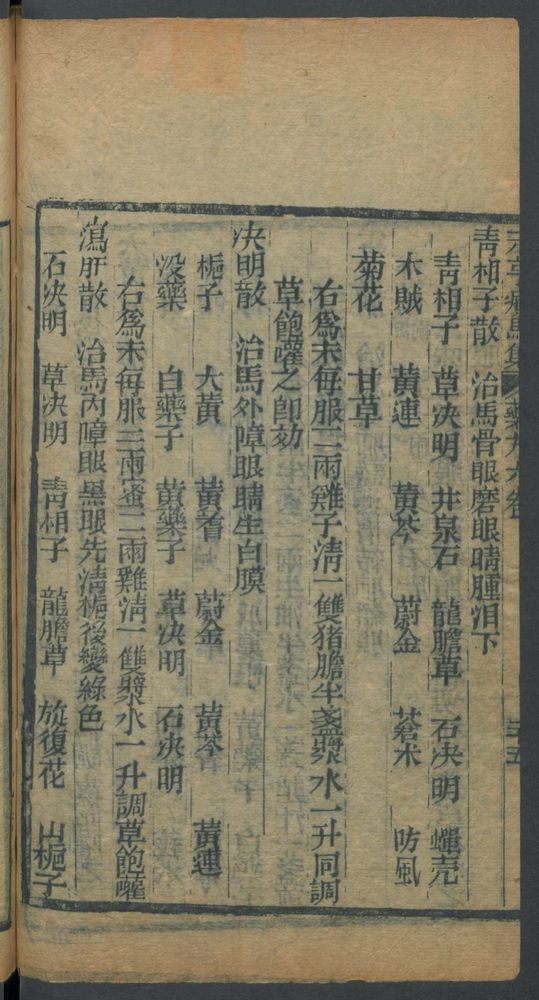 元亨療馬集 藥九六卷 三五
青相子散 治馬骨眼磨眼睛腫泪下
青相子 草决明 井泉石 龍膽草 石决明 蟬壳
木賊 黃連 黃芩 蔚金 蒼术 防風
菊花 甘草
右爲末每服二兩雞子清一雙猪膽半盞漿水一升同調
草飽嚾之卽効
决明散 治馬外障眼睛生白膜
梔子 大黃 黃蓍 蔚金 黃芩 黃連
没藥 白藥子 黃藥子 草决明 石决明
右爲末每服三兩蜜二兩雞清一雙漿水一升調草飽嚾
瀉肝散 治馬內障眼黑眼先清梔後變綠色
石决明 草决明 靑相子 龍膽草 旋復花 山梔子